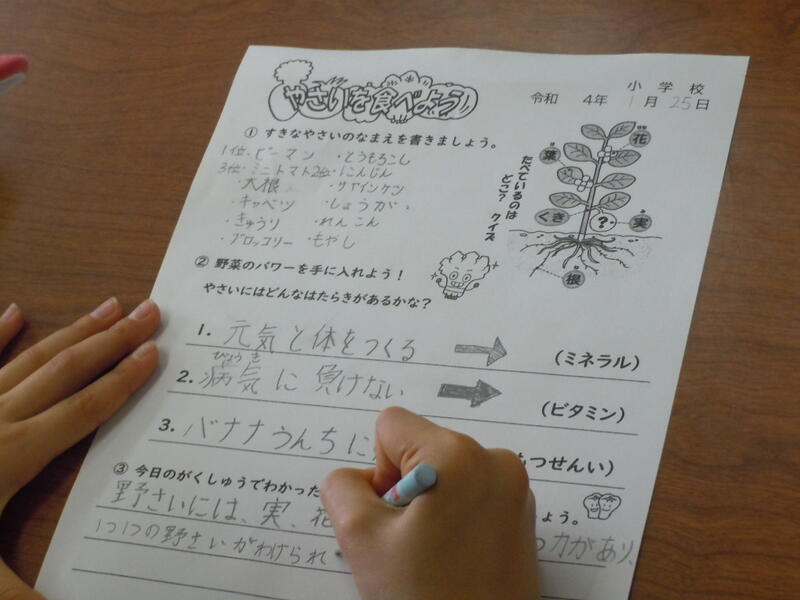 やさいを食べよう
小学校
令和 4年 1月 25日
① すきなやさいのなまえを書きましょう。
1位・ピーマン ・とうもろこし
3位・ミニトマト 2位・にんじん
・大根 ・サヤインゲン
・キャベツ ・しょうが
・きゅうり ・れんこん
・ブロッコリー ・もやし
たべているのは
どこ? クイズ
花
葉
くき
?
実
根
② 野菜のパワーを手に入れよう！
やさいにはどんなはたらきがあるかな？
1. 元気と体をつくる (ミネラル)
びょうき
2. 病気に負けない (ビタミン)
3. バナナうんちに もつせんい)
③ 今日のがくしゅうでわかった ょう。
野さいには、実、花
1つ1つの野さいがわけられ 力があり、